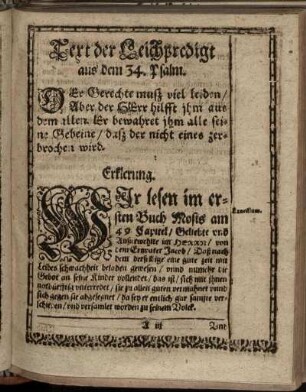 Text der Leichpredigt
aus dem 34. Psalm.
DEr Gerechte muß viel leiden/
Aber der HErr hilfft jhm aus
dem allen. Er bewahret jhm alle sei-
ne Gebeine/ daß der nicht eines zer-
brochen wird.
Erklerung.
WIr lesen im er-
sten Buch Mosis am
49 Capitel/ Geliebte vnd
im HERRN/ von
dem Ertzvater Jacob/ Daß nach
dem derselbige eine gute zeit mit
Leibes schwachheit beladen gewesen/ vnnd numehr die
Gebot an seine Kinder vollendet/ das ist/ sich mit jhnen
notdürfftig vnterredet/ sie zu allem guten vermahnet vnnd
sich gegen sie abgesegnet/ da sey er entlich gar sanffte ver-
schieden/ vnd versamlet worden zu seinem Volck.
Exordium.
A iij